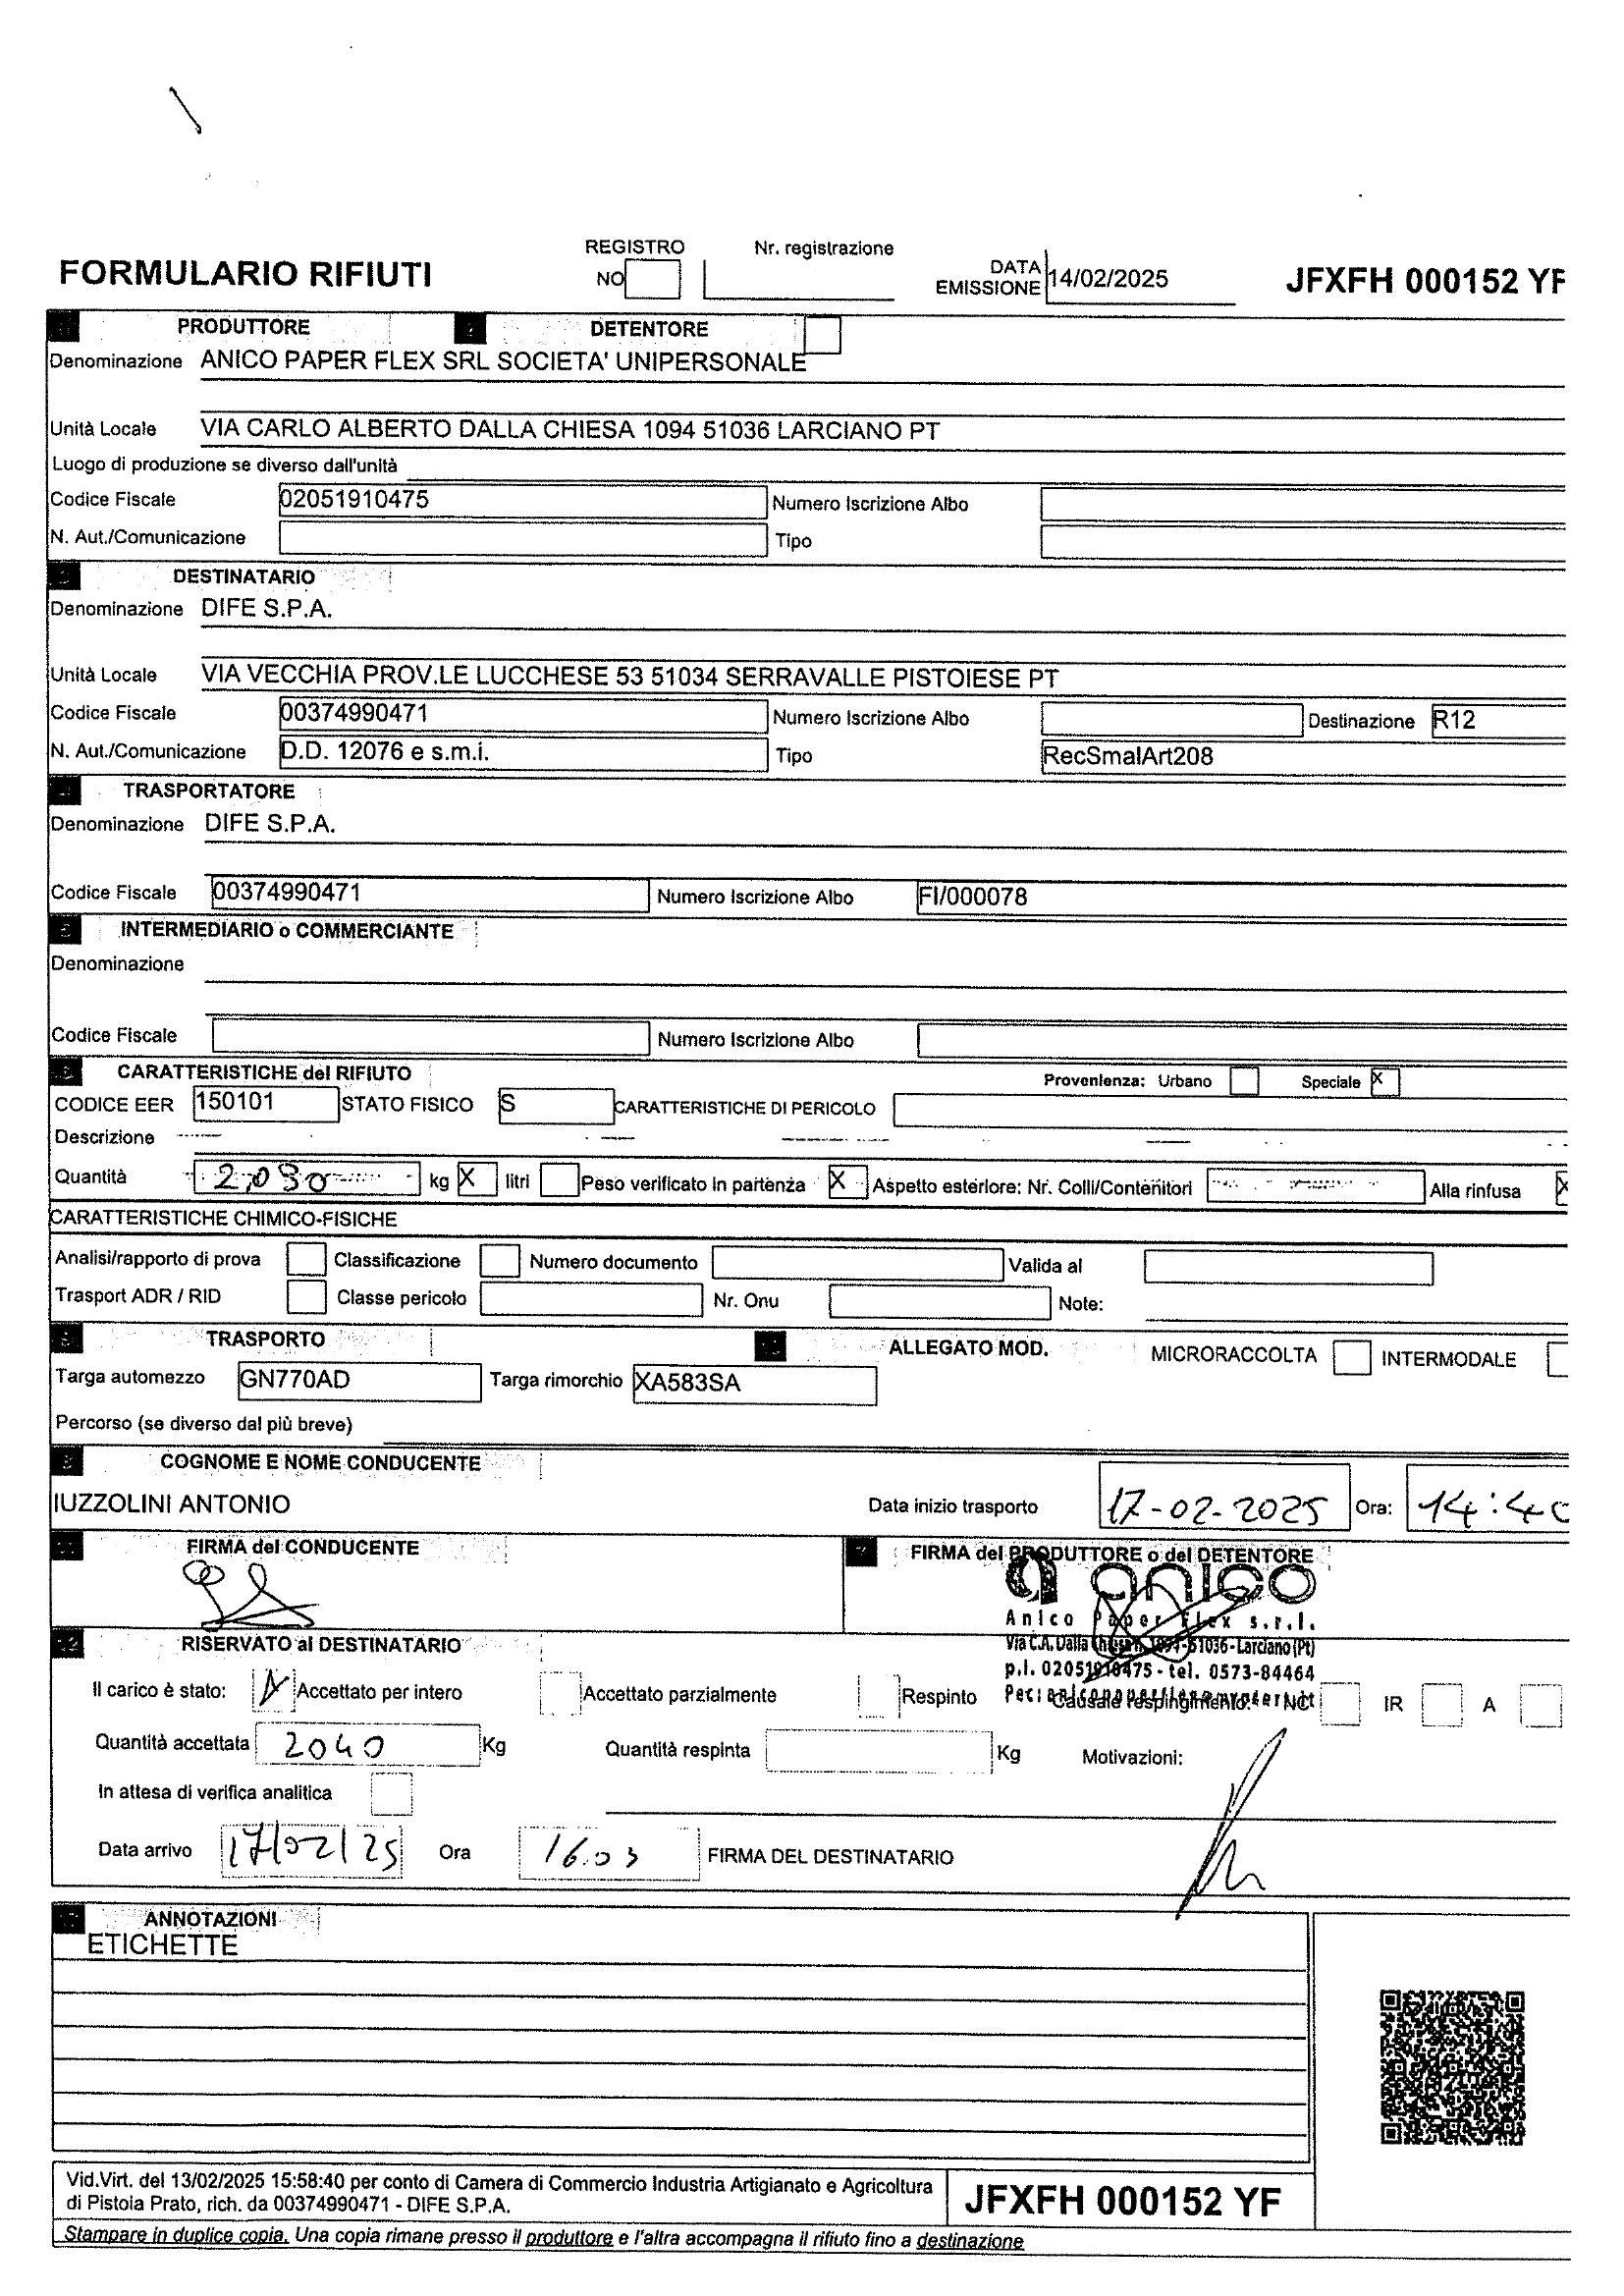 REGISTRO Nr. registrazione
FORMULARIO RIFIUTI NO DATA EMISSIONE 14/02/2025 JFXFH 000152 YF
PRODUTTORE DETENTORE
Denominazione ANICO PAPER FLEX SRL SOCIETA' UNIPERSONALE
Unità Locale VIA CARLO ALBERTO DALLA CHIESA 1094 51036 LARCIANO PT
Luogo di produzione se diverso dall'unità
Codice Fiscale 02051910475 Numero Iscrizione Albo
N. Aut./Comunicazione Tipo
DESTINATARIO
Denominazione DIFE S.P.A.
Unità Locale VIA VECCHIA PROV.LE LUCCHESE 53 51034 SERRAVALLE PISTOIESE PT
Codice Fiscale 00374990471 Numero Iscrizione Albo Destinazione R12
N. Aut./Comunicazione D.D. 12076 e s.m.i. Tipo RecSmalArt208
TRASPORTATORE
Denominazione DIFE S.P.A.
Codice Fiscale 00374990471 Numero Iscrizione Albo FI/000078
INTERMEDIARIO o COMMERCIANTE
Denominazione
Codice Fiscale Numero Iscrizione Albo
6 CARATTERISTICHE del RIFIUTO Provenienza: Urbano Speciale X
CODICE EER 150101 STATO FISICO S CARATTERISTICHE DI PERICOLO
Descrizione
Quantità kg X litri Peso verificato in partenza X Aspetto esteriore: Nr. Colli/Contenitori Alla rinfusa X
CARATTERISTICHE CHIMICO-FISICHE
Analisi/rapporto di prova Classificazione Numero documento Valida al
Trasport ADR / RID Classe pericolo Nr. Onu Note:
9 TRASPORTO ALLEGATO MOD. MICRORACCOLTA INTERMODALE
Targa automezzo GN770AD Targa rimorchio XA583SA
Percorso (se diverso dal più breve)
8 COGNOME E NOME CONDUCENTE
IUZZOLINI ANTONIO Data inizio trasporto 17-02-2025 Ora: 14:40
FIRMA del CONDUCENTE 7 FIRMA del PRODUTTORE o del DETENTORE
anico
Anico Paper Flex s.r.l.
Via C.A. Dalla Chiesa n. 1094-51036-Larciano (Pt)
p.I. 02051910475 - tel. 0573-84464
12 RISERVATO al DESTINATARIO
Il carico è stato: Accettato per intero Accettato parzialmente Respinto Causale respingimento: NC IR A
Quantità accettata 2040 Kg Quantità respinta Kg Motivazioni:
In attesa di verifica analitica
Data arrivo 17/02/25 Ora 16.03 FIRMA DEL DESTINATARIO
ANNOTAZIONI
ETICHETTE
Vid.Virt. del 13/02/2025 15:58:40 per conto di Camera di Commercio Industria Artigianato e Agricoltura
di Pistoia Prato, rich. da 00374990471 - DIFE S.P.A.
JFXFH 000152 YF
Stampare in duplice copia. Una copia rimane presso il produttore e l'altra accompagna il rifiuto fino a destinazione